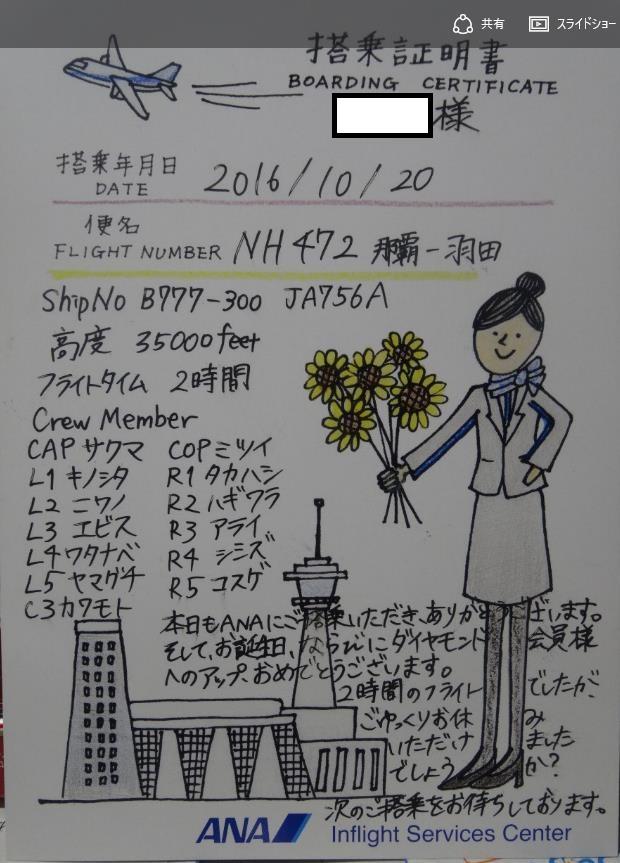 共有 スライドショー
搭乗証明書
BOARDING CERTIFICATE
様
搭乗年月日
DATE 2016/10/20
便名
FLIGHT NUMBER NH472 那覇-羽田
ShipNo B777-300 JA756A
高度 35000feet
フライトタイム 2時間
Crew Member
CAP サクマ COP ミツイ
L1 キノシタ R1 タカハシ
L2 ニワノ R2 ハギワラ
L3 エビス R3 アライ
L4 ワタナベ R4 シミズ
L5 ヤマグチ R5 コスゲ
C3 カワモト
本日もANAにご搭乗いただき、ありがとうございます。
そして、お誕生日、ならびにダイヤモンド会員様
へのアップ、おめでとうございます。
2時間のフライトでしたが、
ごゆっくりお休み
いただけました
でしょうか?
次のご搭乗をお待ちしております。
ANA Inflight Services Center